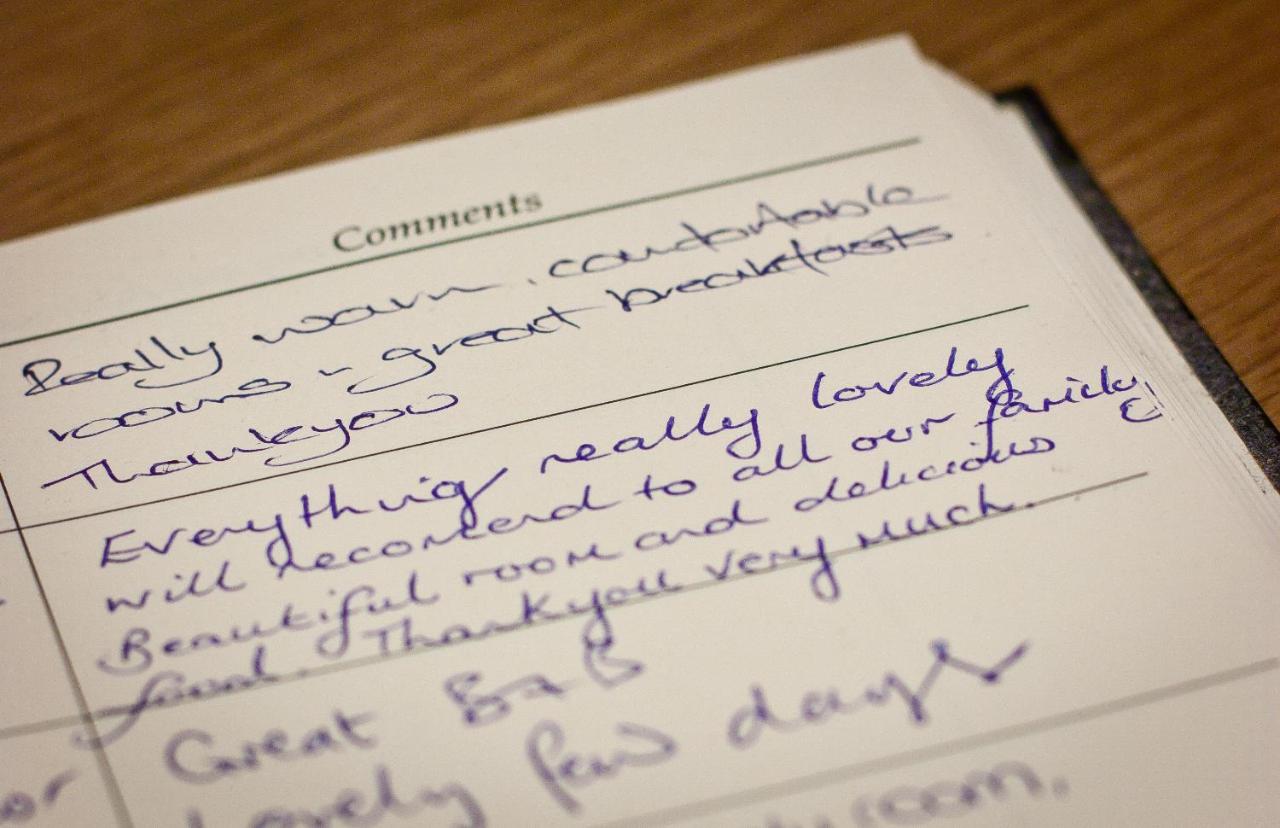 Comments
Really warm, comfortable
rooms - great breakfasts
Thankyou
Everything really lovely
will recomend to all our family &
Beautiful room and delicious
food. Thankyou very much.
Great B+B
Lovely few days
room,
or